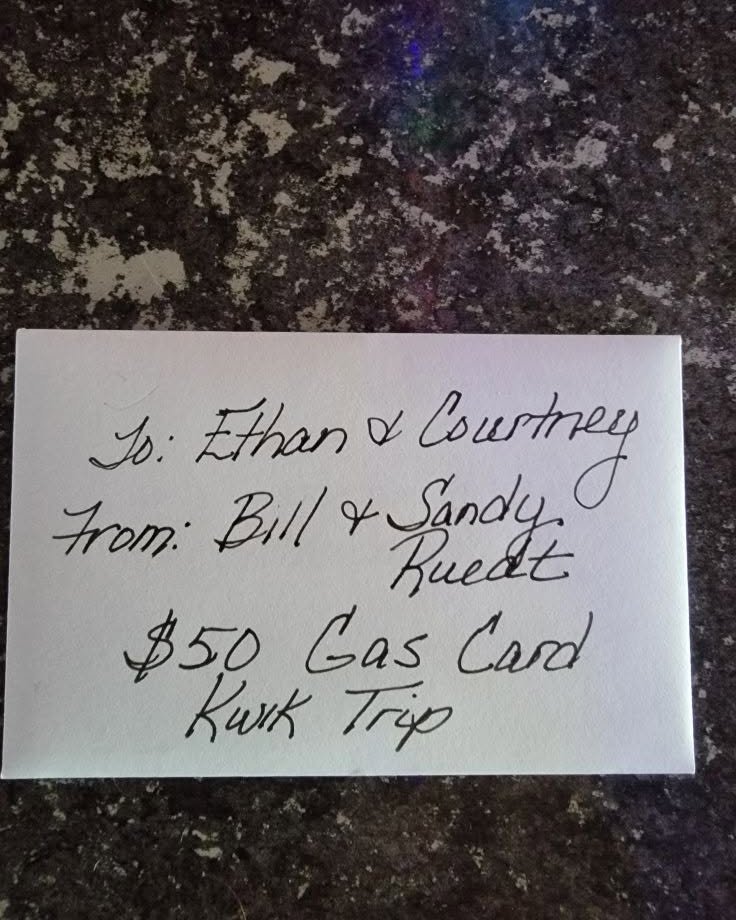 To: Ethan & Courtney
From: Bill & Sandy
Ruedt
$50 Gas Card
Kwik Trip